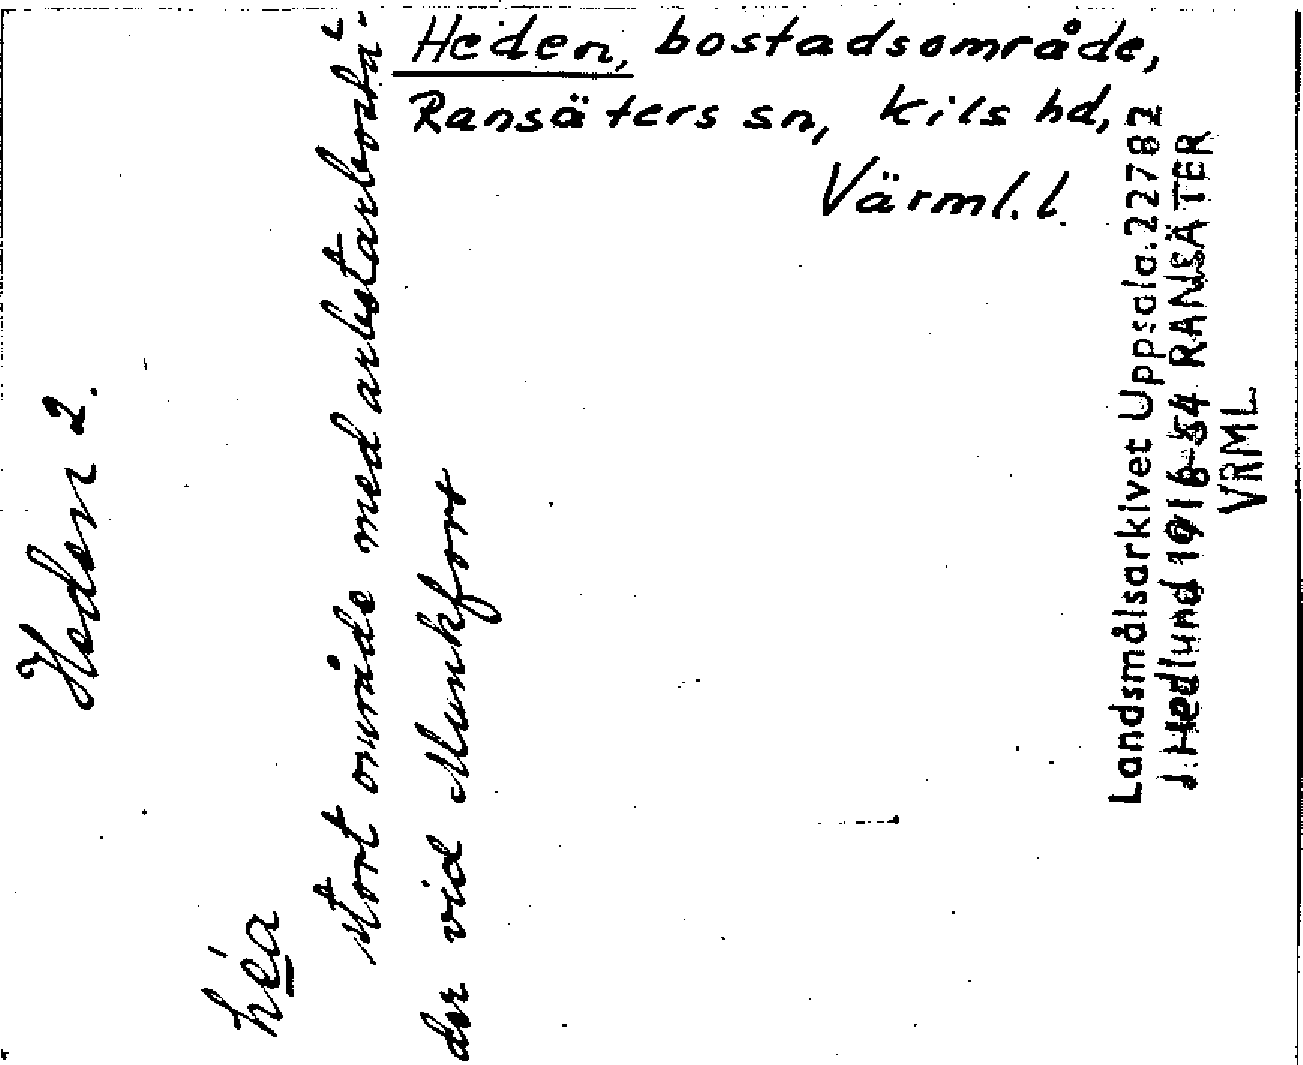 Heden, bostadsområde,
Ransäters sn, Kils hd,
Värml. l.
Heden 2.
héa
stort område med arbetarbostä-
der vid Munkfors
Landsmålsarkivet Uppsala. 22782
J. Hedlund 1916-54 RANSÄTER
VRML